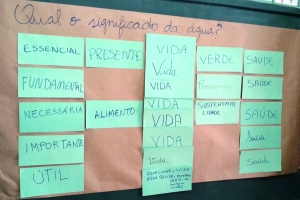 Qual o significado da água?
ESSENCIAL
FUNDAMENTAL
NECESSÁRIA
IMPORTANTE
ÚTIL
PRESENTE
ALIMENTO
VIDA
Vida
VIDA
VIDA
VIDA
VIDA
Vida
VERDE
SUSTENTABI
LIDADE
SAÚDE
SAÚDE
SAÚDE
Saúde
Saúde